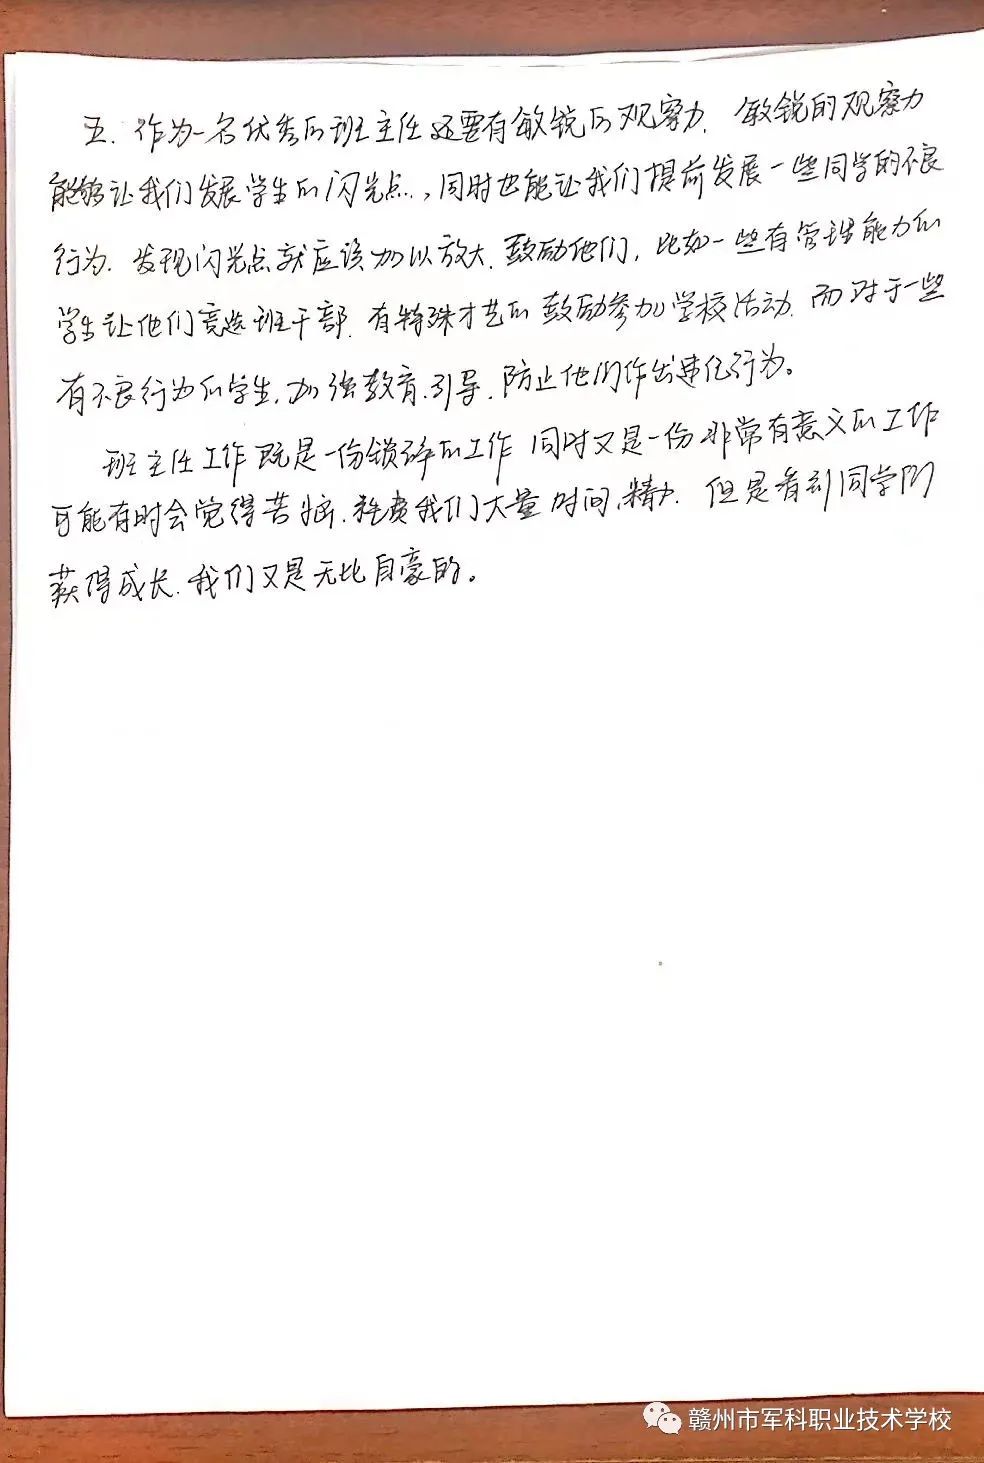 五.作为一名优秀的班主任还要有敏锐的观察力.敏锐的观察力
能够让我们发展学生的闪光点.,同时也能让我们提前发展一些同学的不良
行为.发现闪光点就应该加以放大.鼓励他们,比如一些有管理能力的
学生让他们竞选班干部.有特殊才艺的鼓励参加学校活动.而对于一些
有不良行为的学生.加强教育.引导.防止他们作出违纪行为。
班主任工作既是一份锁碎的工作 同时又是一份非常有意义的工作
可能有时会觉得苦恼.耗费我们大量时间、精力.但是看到同学们
获得成长.我们又是无比自豪的。
赣州市军科职业技术学校